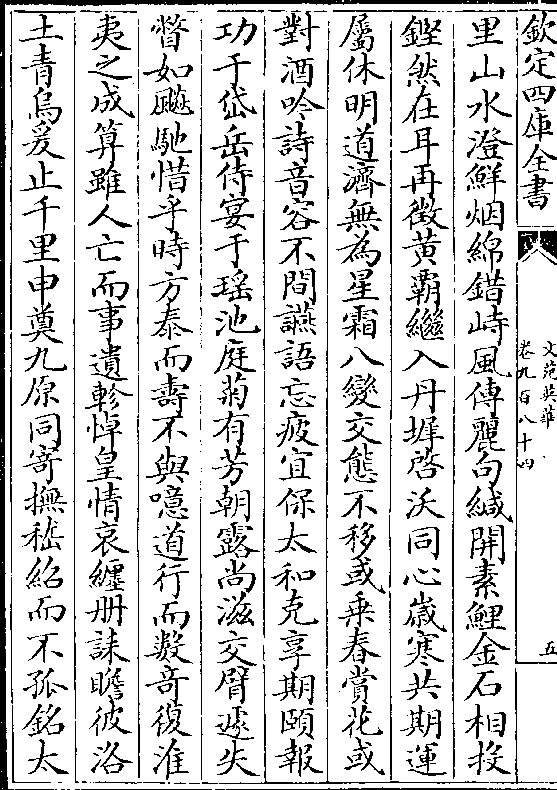 欽定四庫全書
文苑英華
卷九百八十四
五
里山水澄鮮烟綿錯峙風傳麗句緘開素鯉金石相投
鏗然在耳再徴黄霸繼入丹墀啓沃同心歳寒共期運
屬休明道濟無為星霜八變交態不移或乗春賞花或
對酒吟詩音容不間讌語忘疲宜保太和克享期頤報
功于岱岳侍宴于瑶池庭菊有芳朝露尚滋交臂遽失
瞥如飈馳惜乎時方泰而壽不與噫道行而数竒復淮
夷之成算雖人亡而事遺軫悼皇情哀纒册誄瞻彼洛
土青烏爰止千里申奠九原同寄撫嵇紹而不孤銘太